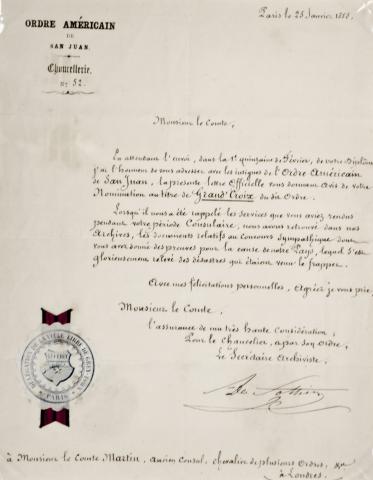 ORDRE AMÉRICAIN
DE
SAN JUAN.
Chancellerie.
No 52.
Paris le 25 Janvier
Monsieur le Comte,
En attendant l'envoi, dans la 1e quinzaine de Février, de votre Diplôme
j'ai l'honneur de vous adresser avec les insignes de l'Ordre Américain
de San Juan, la présente lettre Officielle vous donnant Avis de votre
Nomination au titre de Grand' Croix du dit Ordre.
Lorsqu'il nous a été rappelé les services que vous aviez rendus
pendant votre période Consulaire, nous avons retrouvé dans nos
Archives, les documents relatifs au concours Sympathique dont
vous avez donné des preuves pour la cause de notre Pays, lequel s'est
glorieusement relevé des désastres qui étaient venu le frapper.
Avec mes félicitations personnelles, Agréez je vous prie,
Monsieur le Comte.
l'assurance de ma très haute Considération,
Pour le Chancelier, & par Son Ordre,
Le Secrétaire Archiviste.
PARIS
à Monsieur le Comte Martin, Ancien Consul, Chevalier de plusieurs Ordres,
à Londres.